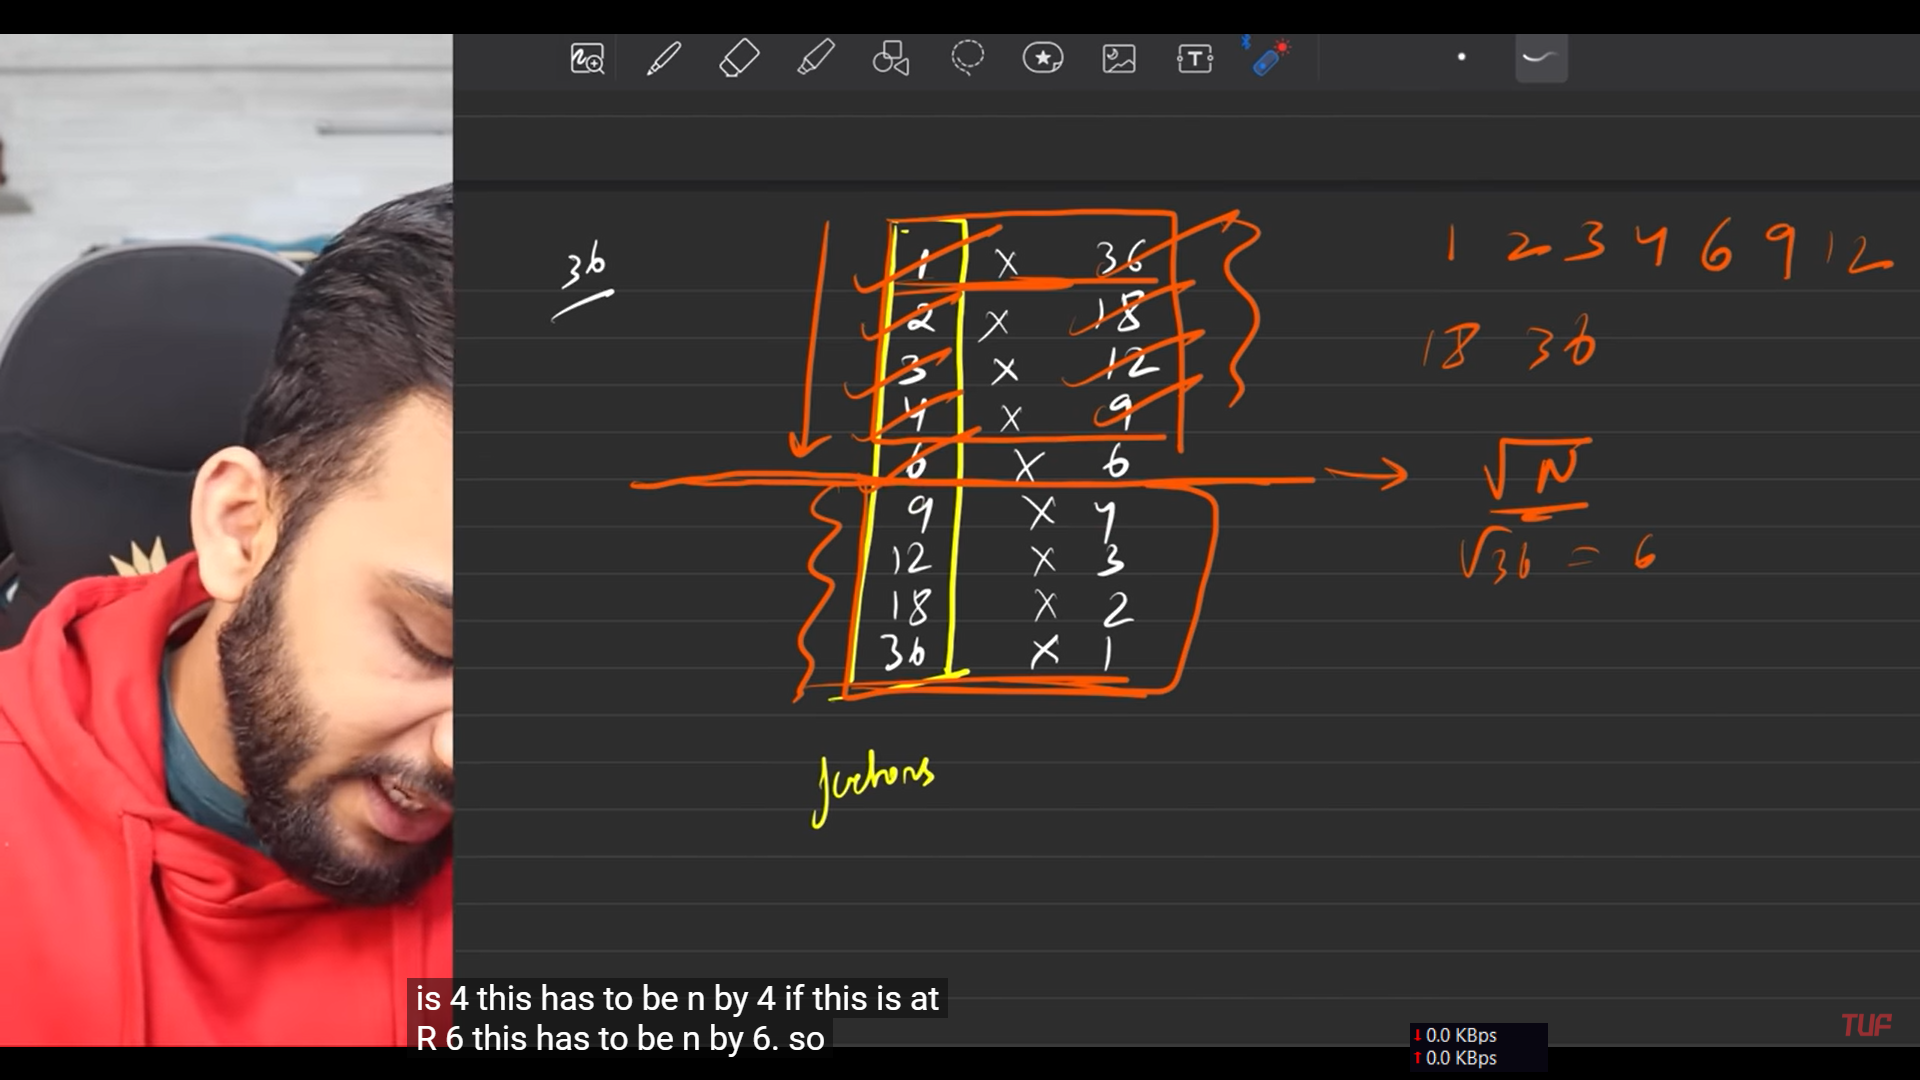 36
1 x 36
2 x 18
3 x 12
4 x 9
6 x 6
9 x 4
12 x 3
18 x 2
36 x 1
1 2 3 4 6 9 12
18 36
√N
√36 = 6
is 4 this has to be n by 4 if this is at
R 6 this has to be n by 6. so
TUF
0.0 KBps
0.0 KBps